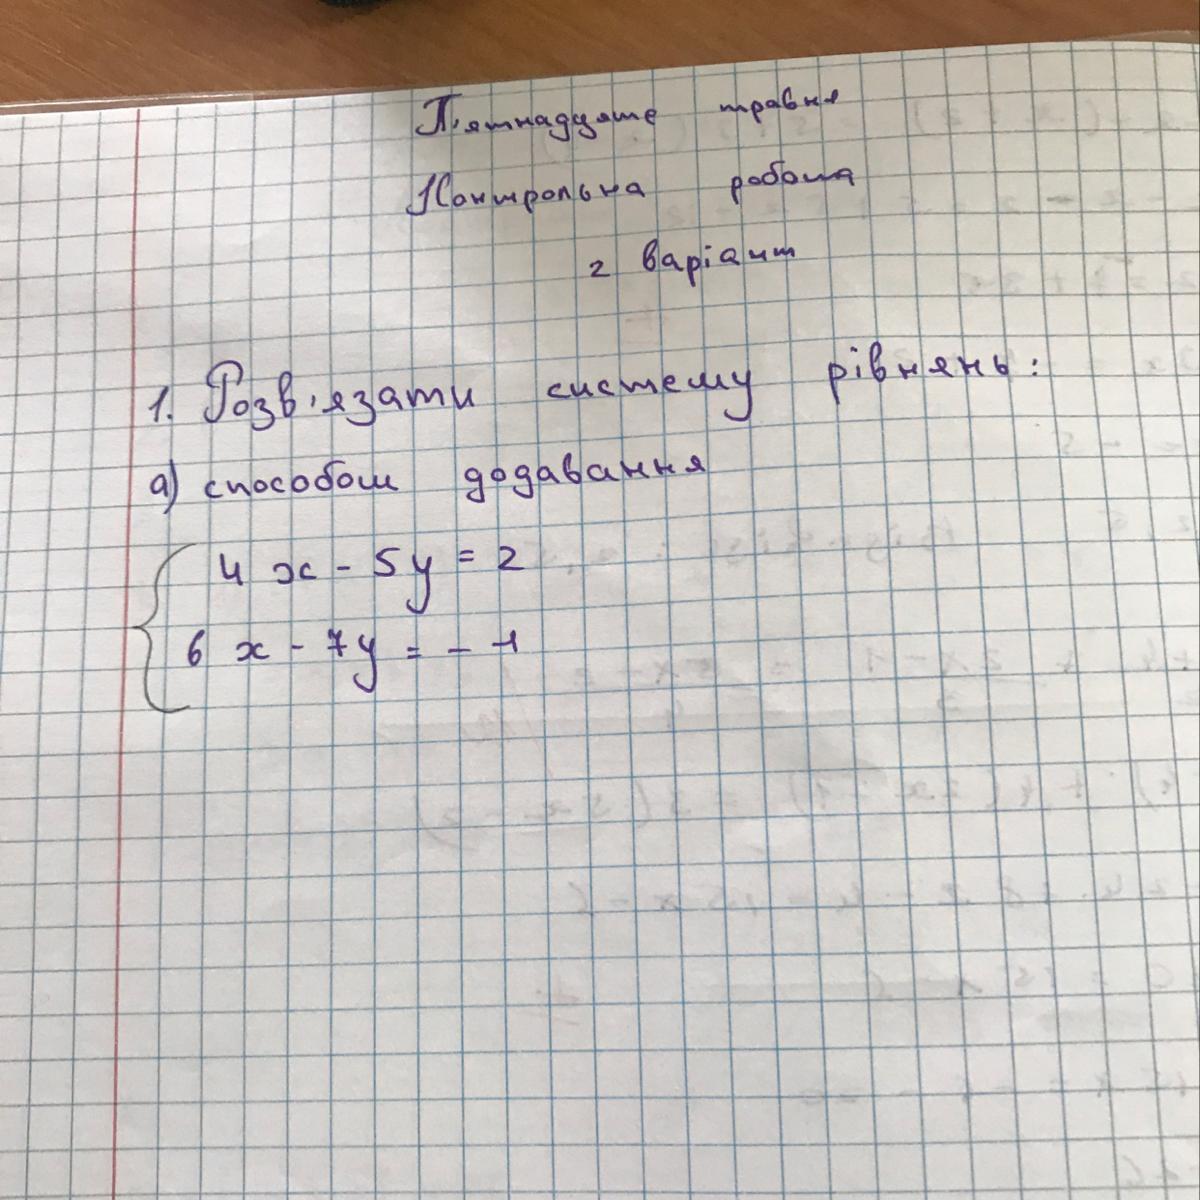 П'ятнадцяте травня
Контрольна робота
2 варіант
1. Розв'язати систему рівнянь:
а) способом додавання
4x - 5y = 2
6x - 7y = - 1